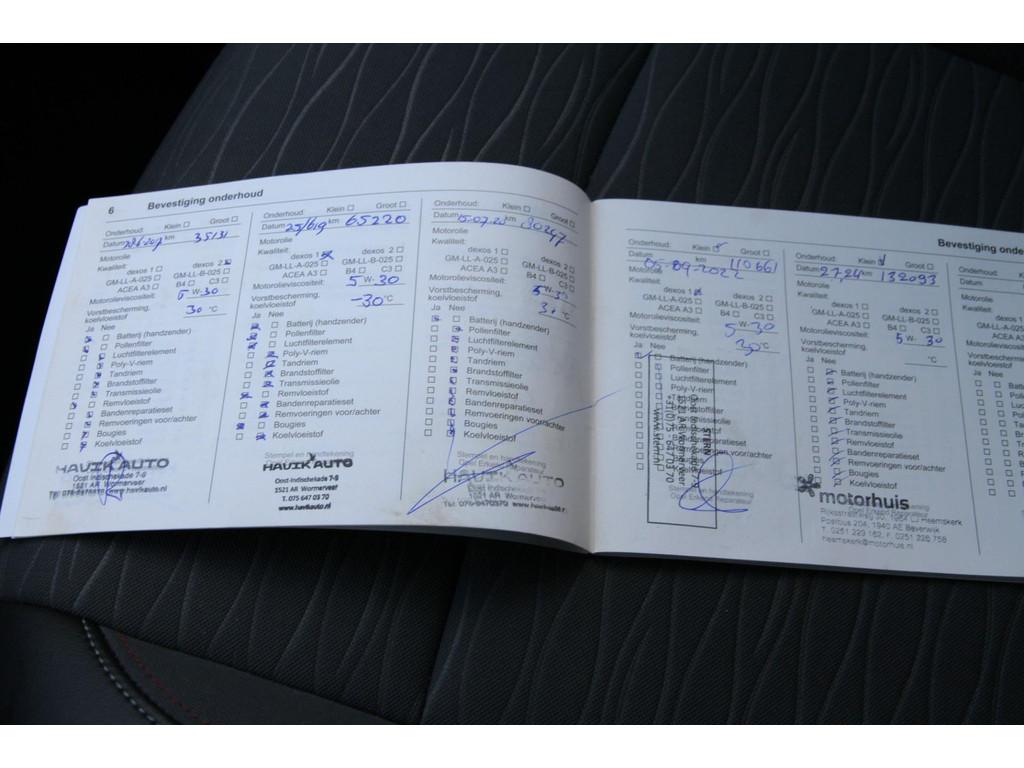 6 Bevestiging onderhoud
Onderhoud: Klein ☐ Groot ☐
Datum km 35131
Motorolie
Kwaliteit:
dexos 1 ☐ dexos 2
GM-LL-A-025 ☐ GM-LL-B-025 ☐
ACEA A3 ☐ B4 ☐ C3 ☐
Motorolieviscositeit: 5 W-30
Vorstbescherming,
koelvloeistof 30 °C
Ja Nee
Batterij (handzender)
Pollenfilter
Luchtfilterelement
Poly-V-riem
Tandriem
Brandstoffilter
Transmissieolie
Remvloeistof
Bandenreparatieset
Remvoeringen voor/achter
Bougies
Koelvloeistof
HAVIK AUTO
Oost-Indischekade 7-8
1521 AR Wormerveer
www.havikauto.nl
Onderhoud: Klein ☐ Groot ☐
Datum 25/6/19 km 65220
Motorolie
Kwaliteit:
dexos 1 dexos 2 ☐
GM-LL-A-025 ☐ GM-LL-B-025 ☐
ACEA A3 ☐ B4 ☐ C3 ☐
Motorolieviscositeit: 5 W-30
Vorstbescherming,
koelvloeistof -30 °C
Ja Nee
Batterij (handzender)
Pollenfilter
Luchtfilterelement
Poly-V-riem
Tandriem
Brandstoffilter
Transmissieolie
Remvloeistof
Bandenreparatieset
Remvoeringen voor/achter
Bougies
Koelvloeistof
Stempel en handtekening
HAVIK AUTO
Oost-Indischekade 7-8
1521 AR Wormerveer
T. 075 647 03 70
www.havikauto.nl
Onderhoud: Klein ☐ Groot ☐
Datum km
Motorolie
Kwaliteit:
dexos 1 ☐ dexos 2 ☐
GM-LL-A-025 ☐ GM-LL-B-025 ☐
ACEA A3 ☐ B4 ☐ C3 ☐
Motorolieviscositeit: 5 W-30
Vorstbescherming,
koelvloeistof °C
Ja Nee
Batterij (handzender)
Pollenfilter
Luchtfilterelement
Poly-V-riem
Tandriem
Brandstoffilter
Transmissieolie
Remvloeistof
Bandenreparatieset
Remvoeringen voor/achter
Bougies
Koelvloeistof
Stempel en handtekening
Opel Erkend Reparateur
HAVIK AUTO
1521 AR Wormerveer
Tel: 075-6470370
Bevestiging onde
Onderhoud: Klein Groot ☐
Datum 05-09-2022 km 110661
Motorolie
Kwaliteit:
dexos 1 dexos 2 ☐
GM-LL-A-025 ☐ GM-LL-B-025 ☐
ACEA A3 ☐ B4 ☐ C3 ☐
Motorolieviscositeit: 5 W-30
Vorstbescherming,
koelvloeistof 30 °C
Ja Nee
Batterij (handzender)
Pollenfilter
Luchtfilterelement
Poly-V-riem
STERN
1521 AR Wormerveer
+31(0)75 - 647 03 70
www.stern.nl
Onderhoud: Klein Groot ☐
Datum km 132093
Motorolie
Kwaliteit:
dexos 1 ☐ dexos 2 ☐
GM-LL-A-025 ☐ GM-LL-B-025 ☐
ACEA A3 ☐ B4 ☐ C3 ☐
Motorolieviscositeit: 5 W-30
Vorstbescherming,
koelvloeistof °C
Ja Nee
Batterij (handzender)
Pollenfilter
Luchtfilterelement
Poly-V-riem
Tandriem
Brandstoffilter
Transmissieolie
Remvloeistof
Bandenreparatieset
Remvoeringen voor/achter
Bougies
Koelvloeistof
motorhuis
1964 LJ Heemskerk
Postbus 204, 1940 AE Beverwijk
heemskerk@motorhuis.nl
Onderhoud:
Datum
Motorolie
Kwaliteit:
GM-LL-A-025
ACEA A3
Motorolieviscositeit
Vorstbescherming
koelvloeistof
Ja Nee